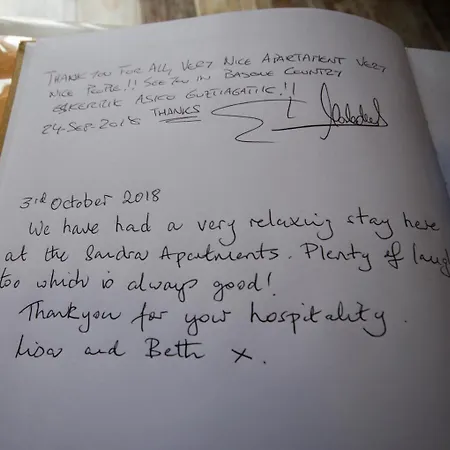 THANK YOU FOR ALL, VERY NICE APARTAMENT VERY
NICE PEOPLE!! SEE YOU IN BASQUE COUNTRY
ESKERRIK ASKO GUZTIAGATIK!!
24-SEP-2018 THANKS
3rd October 2018
We have had a very relaxing stay here
at the Sandra Apartments. Plenty of laug
too which is always good!
Thankyou for your hospitality.
Lisa and Beth x.